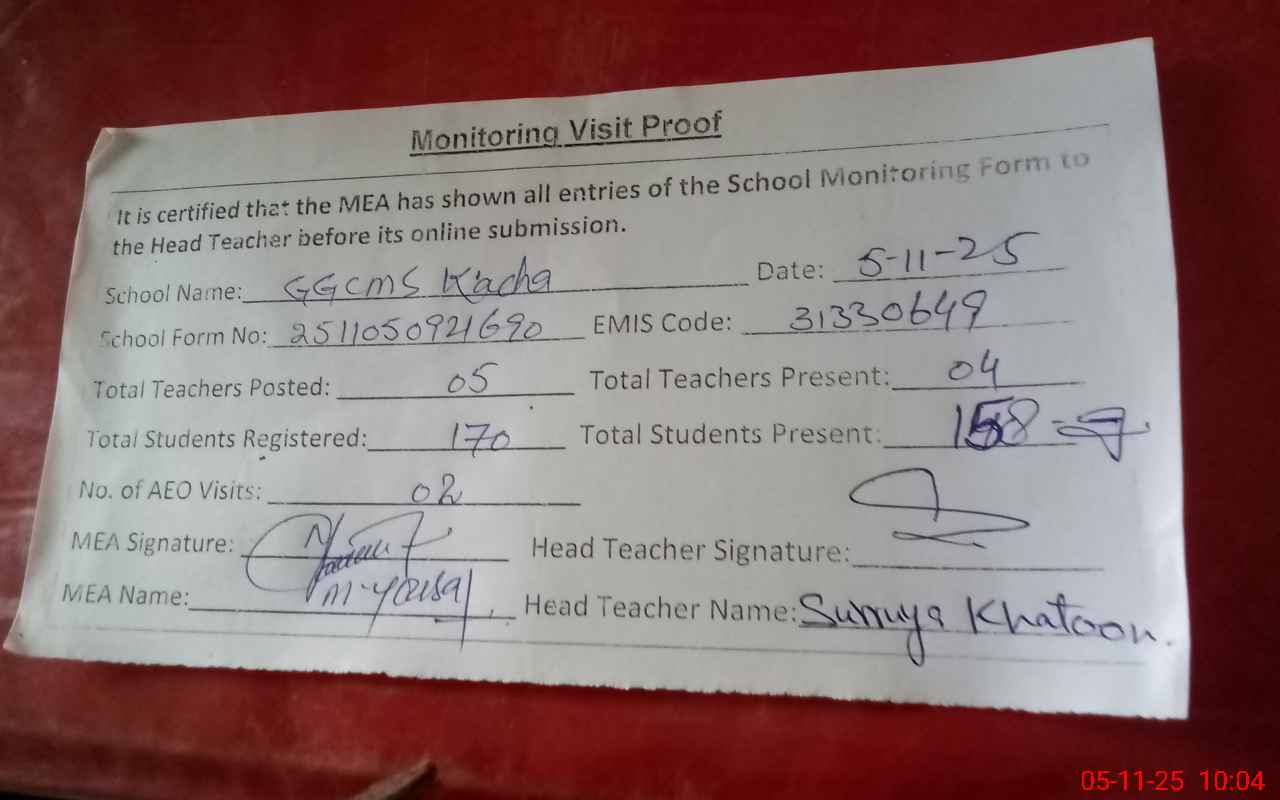 Monitoring Visit Proof
It is certified that the MEA has shown all entries of the School Monitoring Form to
the Head Teacher before its online submission.
School Name: GGCMS Kacha Date: 5-11-25
School Form No: 2511050921690 EMIS Code: 31330649
Total Teachers Posted: 05 Total Teachers Present: 04
Total Students Registered: 170 Total Students Present: 158
No. of AEO Visits: 02
MEA Signature: Head Teacher Signature:
MEA Name: M-Yousaf Head Teacher Name: Surruya Khatoon.
05-11-25 10:04